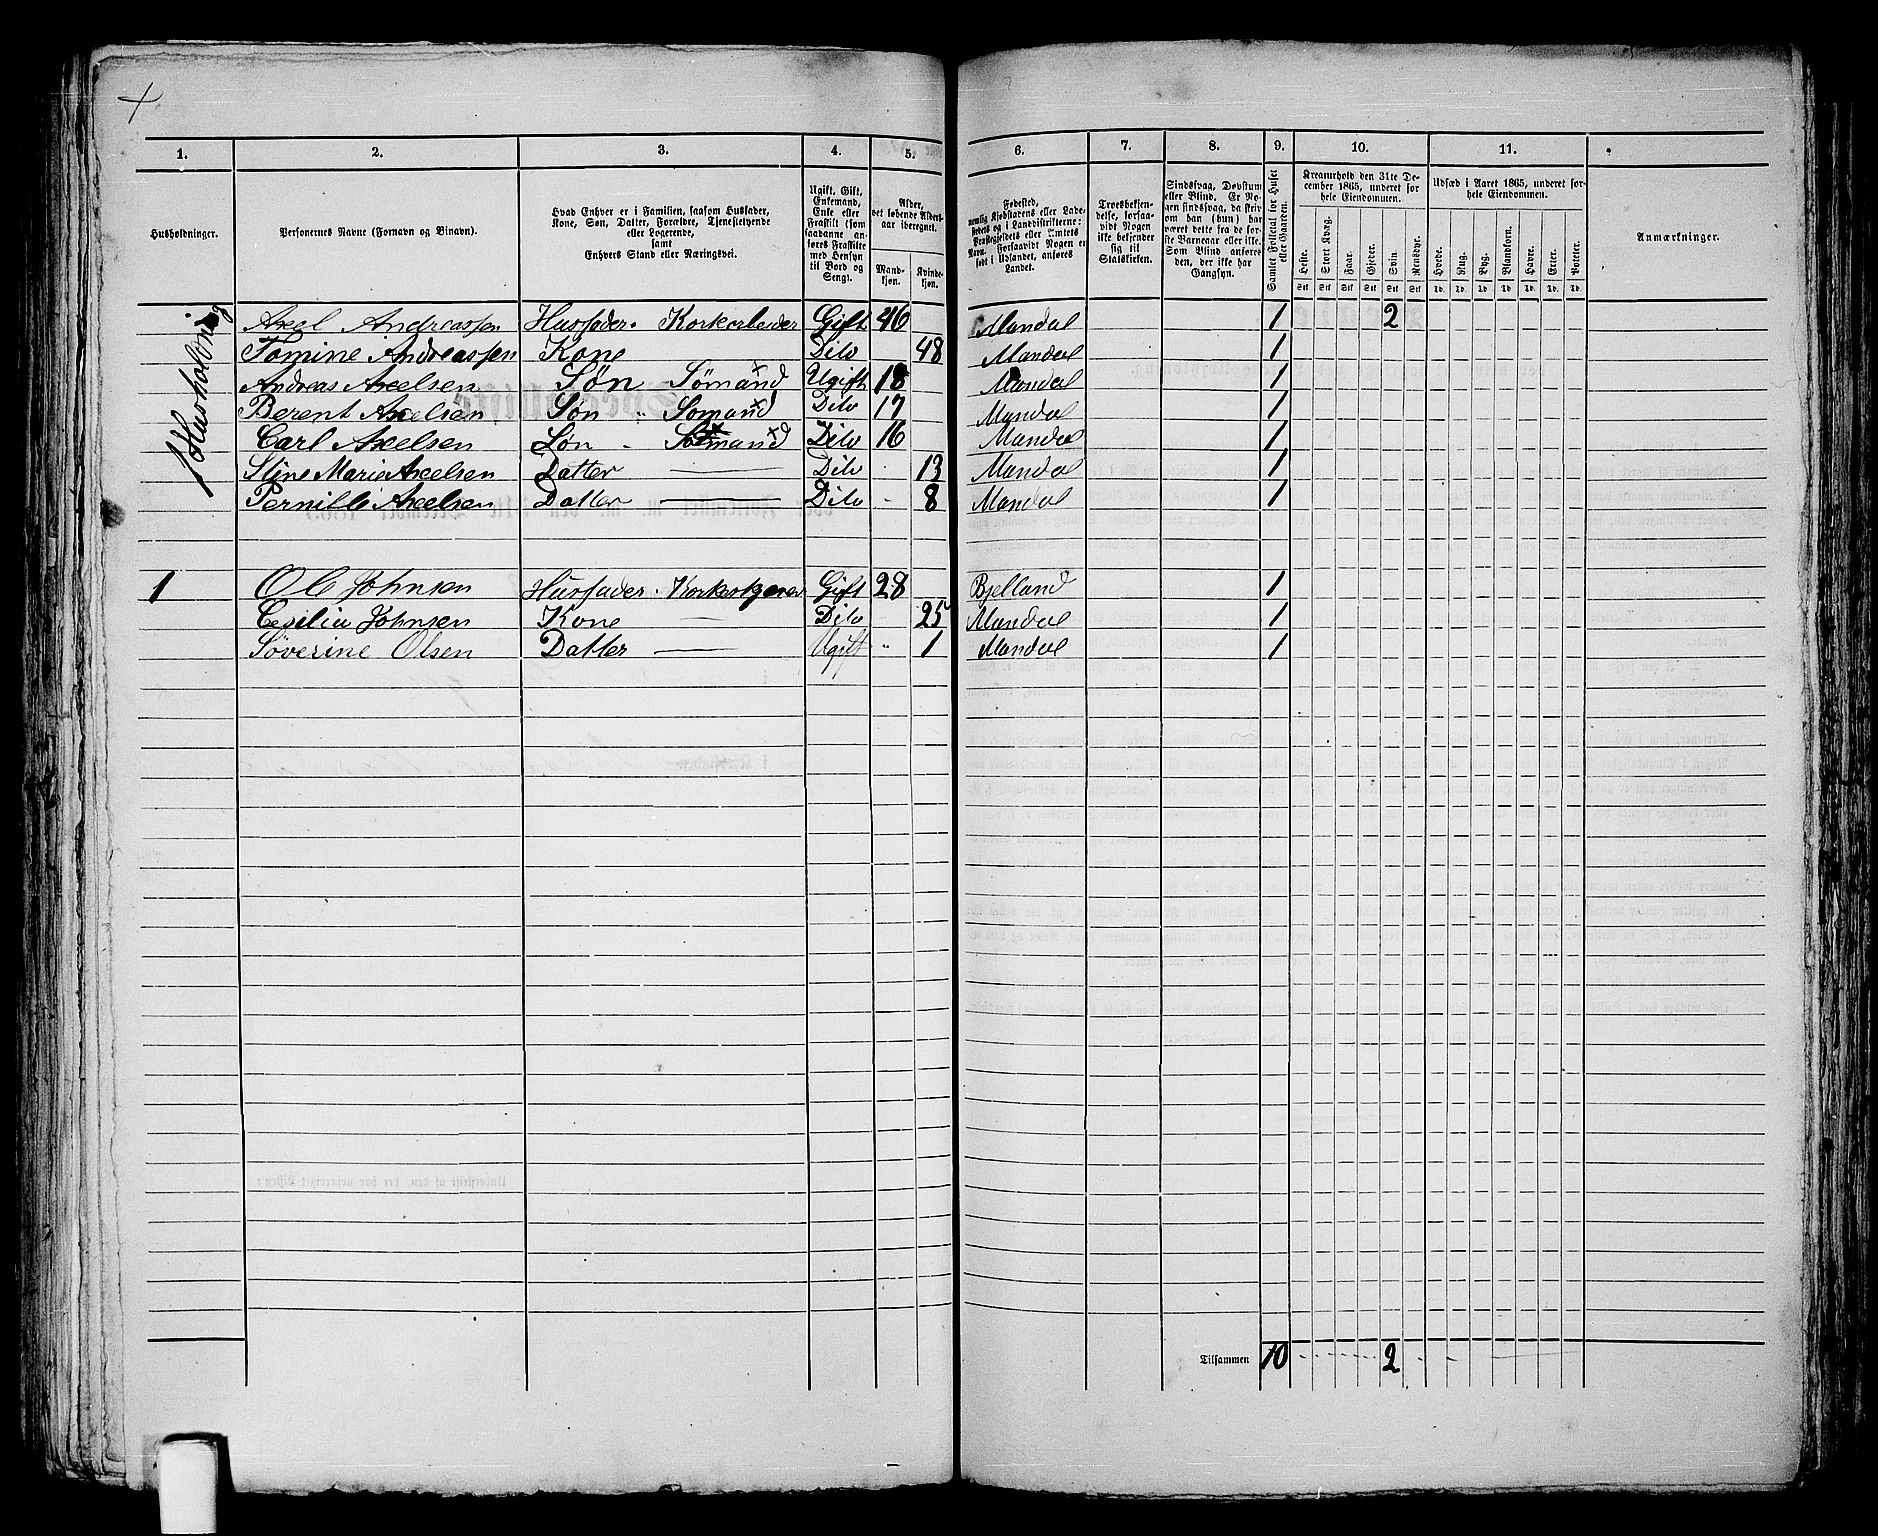 1. 2. 3. 4. 5. 6. 7. 8. 9. 10. 11.
Husholdninger.
Personernes Navne (Fornavn og Binavn).
Hvad Enhver er i Familien, saasom Husfader,
Kone, Søn, Datter, Forældre, Tjenestetyende
eller Logerende,
samt
Enhvers Stand eller Næringsvei.
Ugift, Gift,
Enkemand,
Enke eller
Fraskilt (som
saadanne an-
føres Fraskilte
med Hensyn
til Bord og
Seng).
Alder,
det løbende Alders-
aar iberegnet.
Mand-
kjøn.
Kvinde-
kjøn.
Fødested,
nemlig Kjøbstadens eller Lade-
stedets og i Landdistrikterne:
Præstegjeldets eller Amtets
Navn. Forsaavidt Nogen er
født i Udlandet, anføres
Landet.
Troesbekjen-
delse, forsaa-
vidt Nogen
ikke bekjender
sig til
Statskirken.
Sindssvag, Døvstum
eller Blind. Er No-
gen sindssvag, da skriv
om han (hun) har
været dette fra de før-
ste Barneaar eller ikke.
Som Blind anføres
den, der ikke har
Gangsyn.
Samlet Folketal for Huset
eller Gaarden.
Kreaturhold den 31te De-
cember 1865, underet for
hele Eiendommen.
Heste. Stort Kvæg. Faar. Gjeder. Svin. Rensdyr.
Stk Stk Stk Stk Stk Stk
Udsæd i Aaret 1865, underet for
hele Eiendommen.
Hvede. Rug. Byg. Blandkorn. Havre. Erter. Poteter.
Td. Td. Td. Td. Td. Td. Td.
Anmærkninger.
1 Husholdning
Axel Andreassen Husfader. Korkarbeider Gift 46 Mandal 1 2
Tomine Andreassen Kone Dito 48 Mandal 1
Andreas Axelsen Søn Sømand Ugift 18 Mandal 1
Berent Axelsen Søn " Sømand Dito 17 Mandal 1
Carl Axelsen Søn - Sømand Dito 16 Mandal 1
Stine Marie Axelsen Datter — Dito 13 Mandal 1
Pernille Axelsen Datter — Dito 8 Mandal 1
1 Ole Johnsen Husfader. Gift 28 Bjelland 1
Cesilia Johnsen Kone — Dito 25 Mandal 1
Søverine Olsen Datter — Ugift " 1 Mandal 1
Tilsammen 10 2